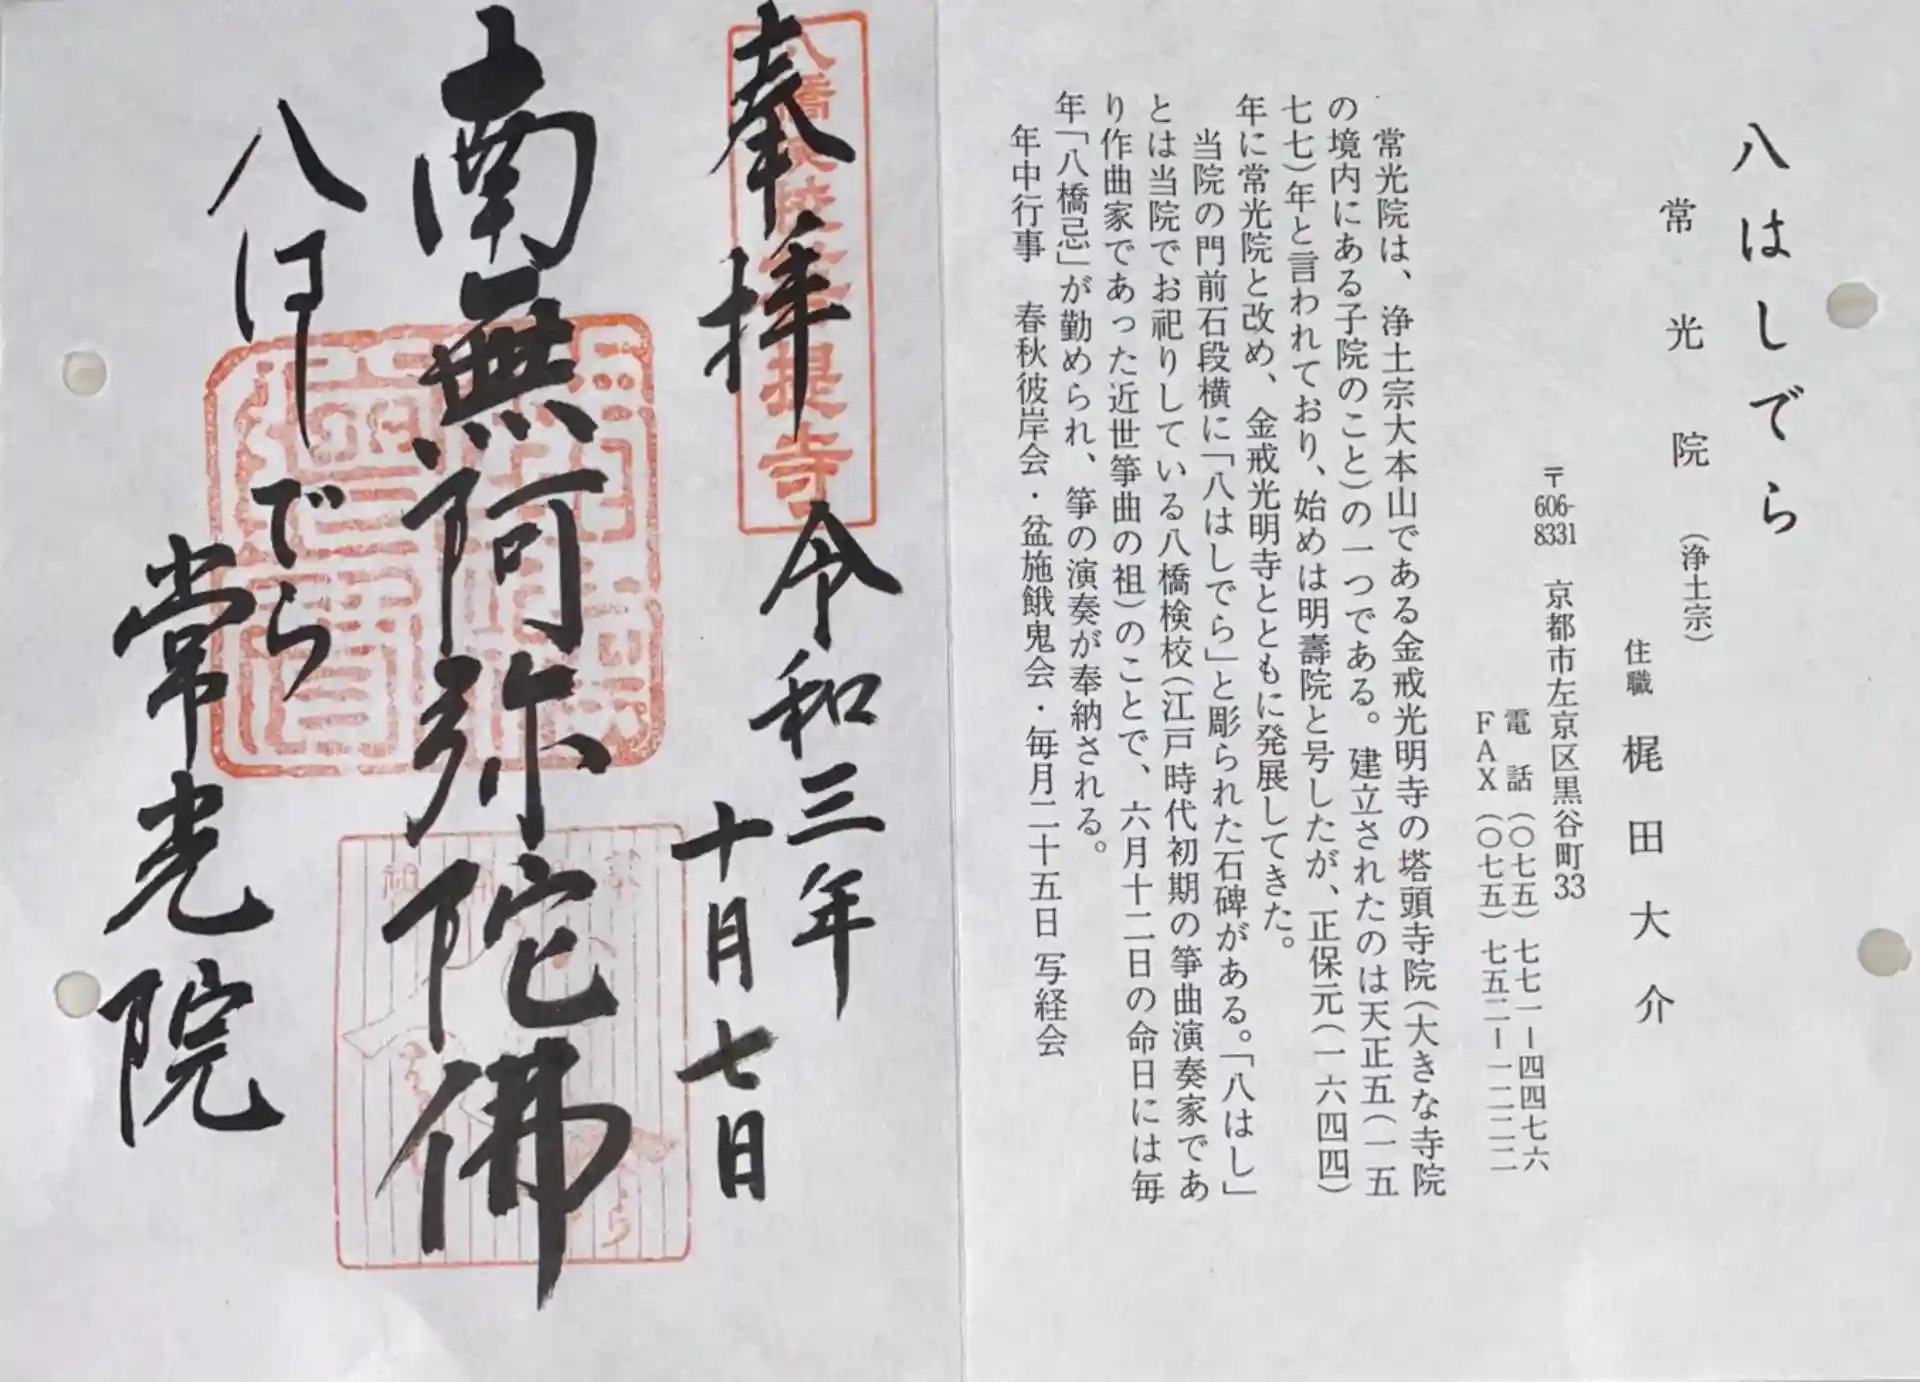 八はしでら
常光院(浄土宗)
住職 梶田大介
〒606-8331 京都市左京区黒谷町33
電話(〇七五)七七一ー四四七六
FAX(〇七五)七五二ー一二二二
常光院は、浄土宗大本山である金戒光明寺の塔頭寺院(大きな寺院
の境内にある子院のこと)の一つである。建立されたのは天正五(一五
七七)年と言われており、始めは明壽院と号したが、正保元(一六四四)
年に常光院と改め、金戒光明寺とともに発展してきた。
当院の門前石段横に「八はしでら」と彫られた石碑がある。「八はし」
とは当院でお祀りしている八橋検校(江戸時代初期の箏曲演奏家であ
り作曲家であった近世箏曲の祖)のことで、六月十二日の命日には毎
年「八橋忌」が勤められ、箏の演奏が奉納される。
年中行事 春秋彼岸会・盆施餓鬼会・毎月二十五日 写経会
奉拝
八橋検校菩提寺
令和三年
十月七日
南無阿弥陀佛
八はしでら
常光院